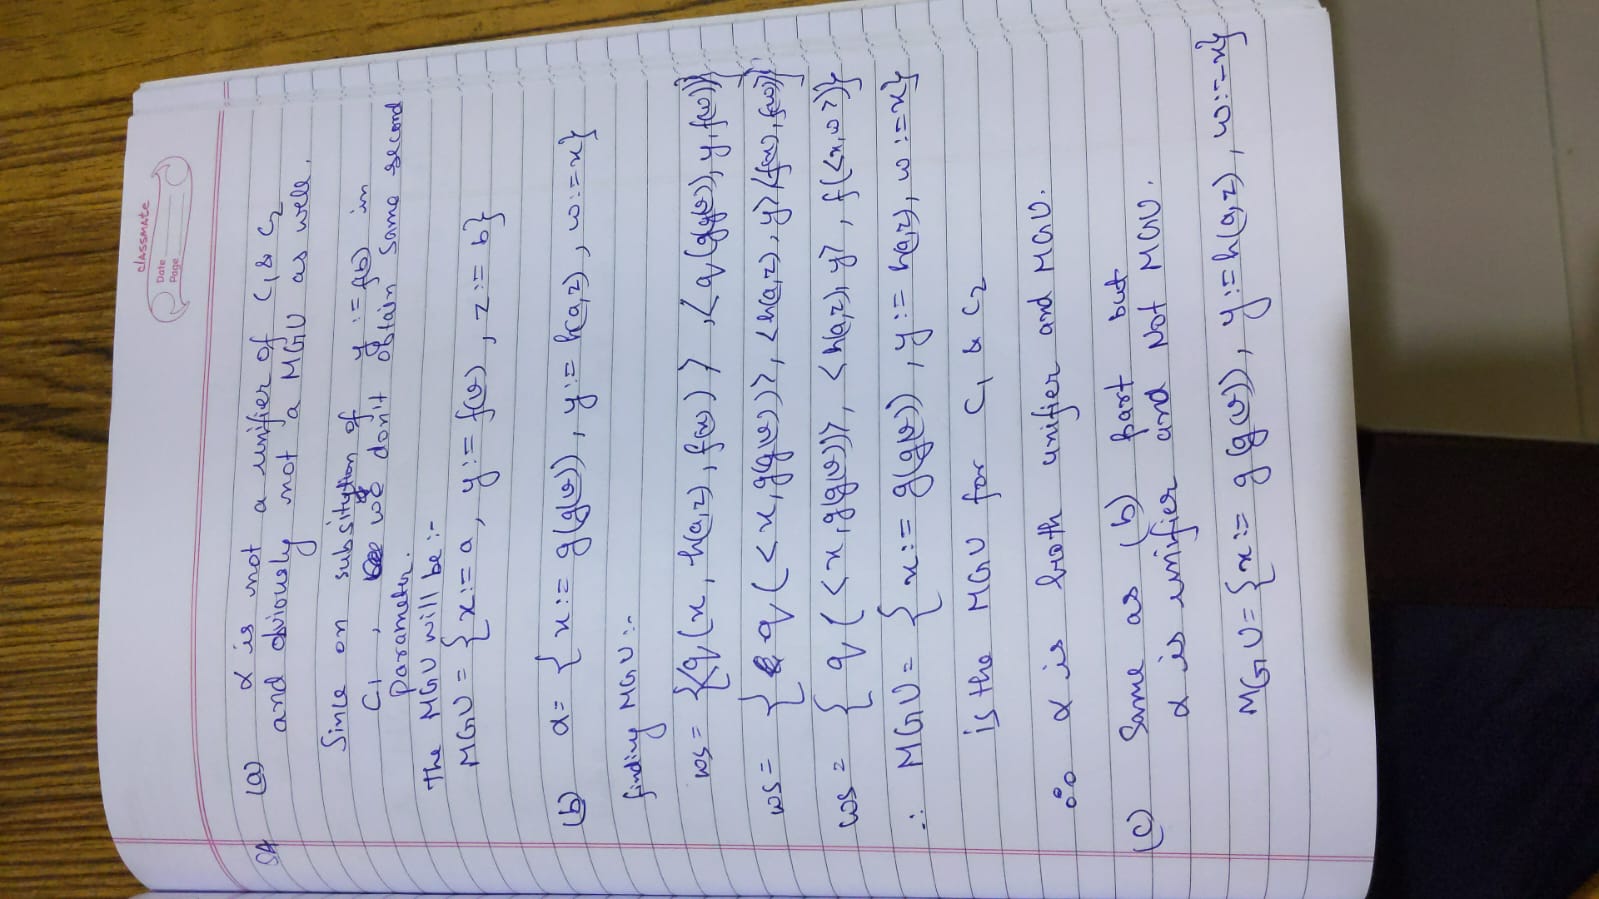 classmate
Date
Page
5A (a) α is not a unifier of C₁ & C₂
and obviously not a MGU as well.
Since on subsitytion of y := f(b) in
C₁, we don't obtain same second
parameter.
The MGU will be :-
MGU = { x := a, y := f(v), z := b}
(b) α = { x := g(g(v)), y := h(a,z), w := x}
finding MGU :-
ws = {<q(x, h(a,z), f(x))>, <q(g(g(v)), y, f(w))}
ws = { q(<x, g(g(v))>, <h(a,z), y> <f(x), f(w)>}
ws = { q(<x, g(g(v))>, <h(a,z), y>, f(<x, w>)}
∴ MGU = { x := g(g(v)), y := h(a,z), w := x}
is the MGU for C₁ & C₂
∴ α is both unifier and MGU.
(c) Same as (b) part but
α is unifier and Not MGU.
MGU = {x := g(g(v)), y := h(a,z), w := x}